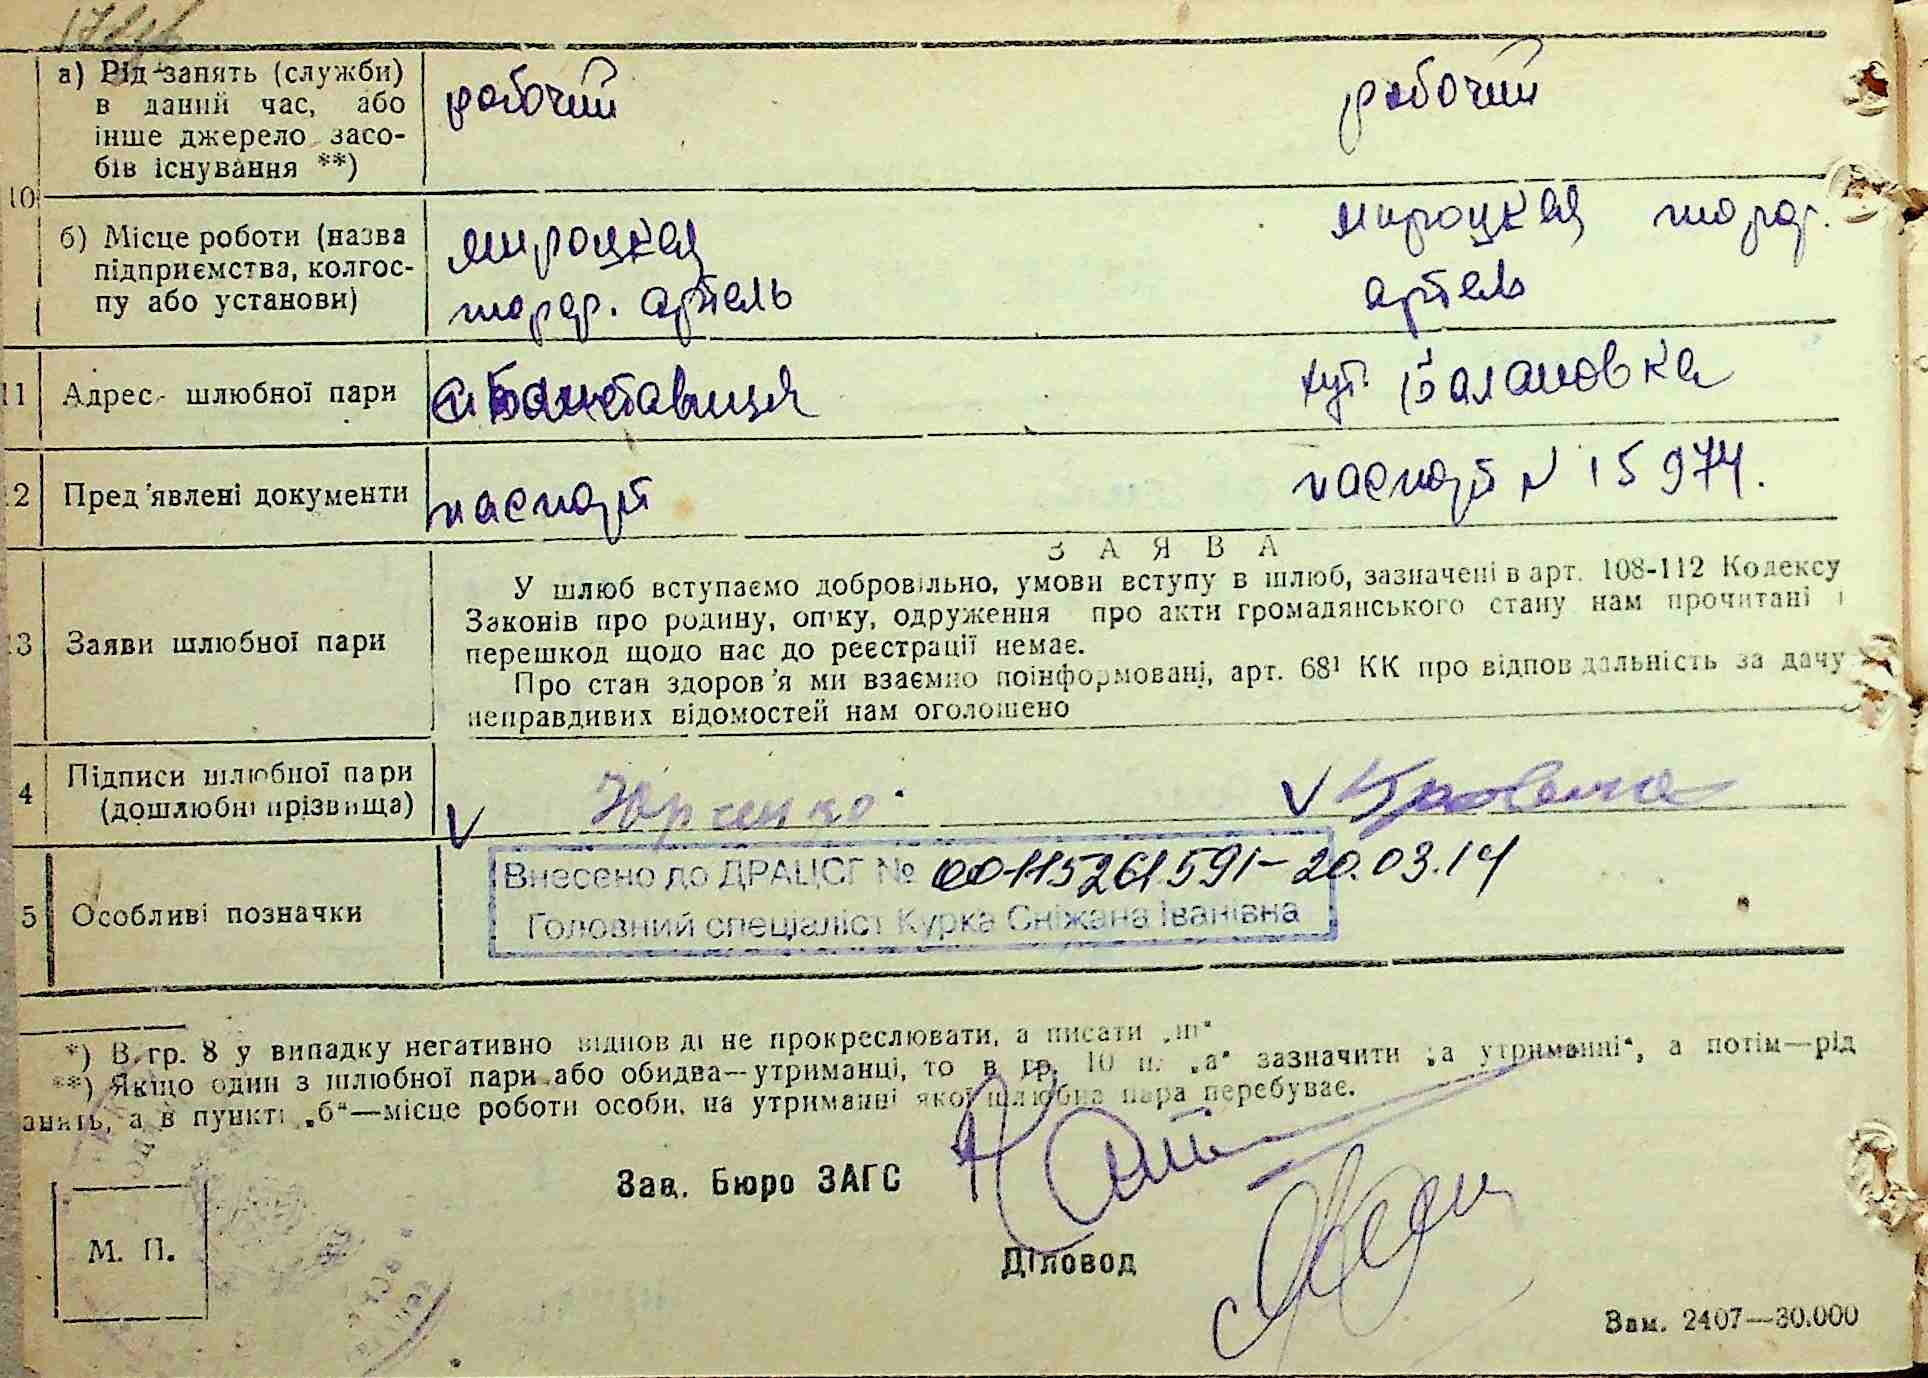 а) Рід занять (служби) в даний час, або інше джерело засобів існування **)
рабочий
рабочий
10
б) Місце роботи (назва підприємства, колгоспу або установи)
мироцкая
торф. артель
мироцкая торф.
артель
11
Адрес шлюбної пари
хут. Балановка
12
Пред'явлені документи
паспорт
паспорт N 15974.
ЗАЯВА
13
Заяви шлюбної пари
У шлюб вступаємо добровільно, умови вступу в шлюб, зазначені в арт. 108-112 Кодексу
Законів про родину, опіку, одруження про акти громадянського стану нам прочитані і
перешкод щодо нас до реєстрації немає.
Про стан здоров'я ми взаємно поінформовані, арт. 68¹ КК про відповідальність за дачу
неправдивих відомостей нам оголошено
4
Підписи шлюбної пари
(дошлюбні прізвища)
V Юрченко
V
5
Особливі позначки
Внесено до ДРАЦСГ № 00115261591-20.03.14
Головний спеціаліст Курка Сніжана Іванівна
*) В гр. 8 у випадку негативно відповіді не прокреслювати, а писати „ні“
**) Якщо один з шлюбної пари або обидва—утриманці, то в гр. 10 п. „а“ зазначити „а утриманні“, а потім—рід
анять, а в пункті „б“—місце роботи особи, на утриманні якої шлюбна пара перебуває.
Зав. Бюро ЗАГС
Діловод
М. П.
Зам. 2407—30.000